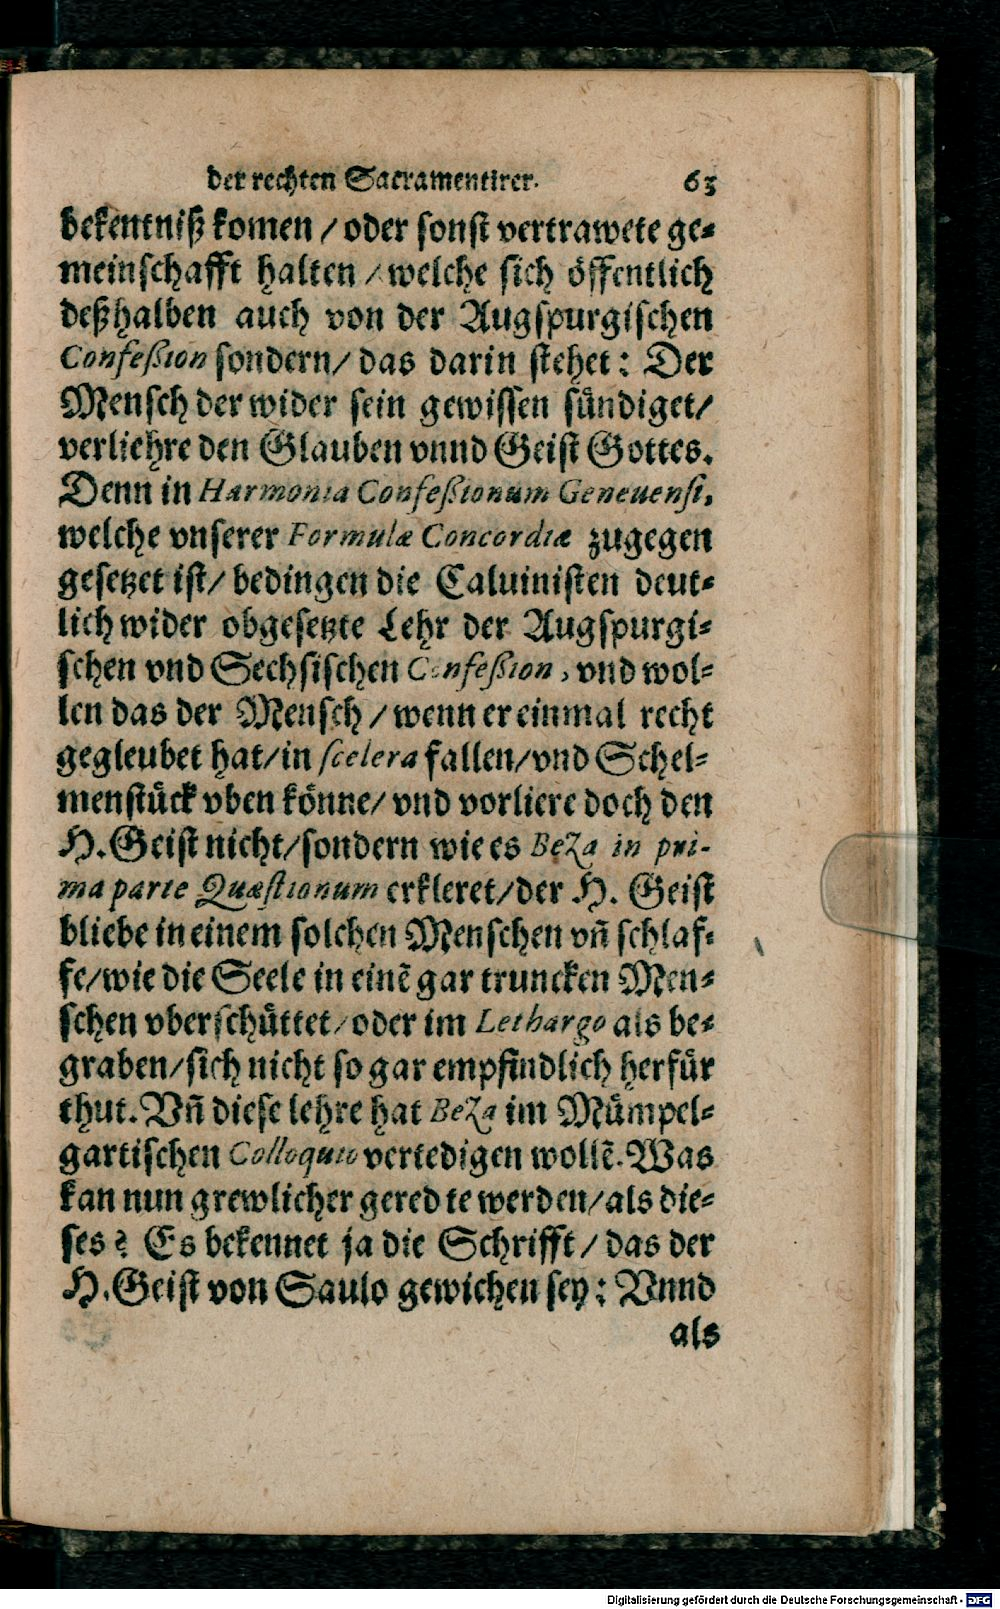 der rechten Sacramentirer. 63
bekentniß komen / oder sonst vertrawete ge-
meinschafft halten / welche sich öffentlich
deßhalben auch von der Augspurgischen
Confeßion sondern / das darin stehet: Der
Mensch der wider sein gewissen sündiget /
verliehre den Glauben vnnd Geist Gottes.
Denn in Harmonia Confeßionum Geneuensi,
welche vnserer Formulæ Concordiæ zugegen
gesetzet ist / bedingen die Caluinisten deut-
lich wider obgesetzte Lehr der Augspurgi-
schen vnd Sechsischen Confeßion, vnd wol-
len das der Mensch / wenn er einmal recht
gegleubet hat / in scelera fallen / vnd Schel-
menstück vben könne / vnd vorliere doch den
H. Geist nicht / sondern wie es BeZa in pri-
ma parte Quæstionum erkleret / der H. Geist
bliebe in einem solchen Menschen vñ schlaf-
fe / wie die Seele in einẽ gar truncken Men-
schen vberschüttet / oder im Lethargo als be-
graben / sich nicht so gar empfindlich herfür
thut. Vñ diese lehre hat BeZa im Mümpel-
gartischen Colloquio vertedigen wollẽ. Was
kan nun grewlicher geredte werden / als die-
ses? Es bekennet ja die Schrifft / das der
H. Geist von Saulo gewichen sey: Vnnd
als
Digitalisierung gefördert durch die Deutsche Forschungsgemeinschaft - DFG